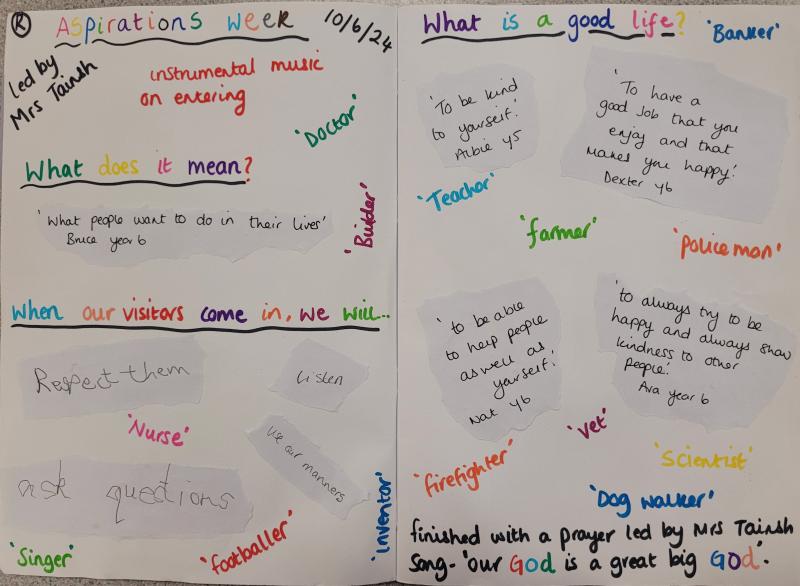 R
Aspirations week
10/6/24
Led by
Mrs Tainsh
instrumental music
on entering
'Doctor'
What does it mean?
'What people want to do in their lives'
Bruce year 6
'Builder'
When our visitors come in, we will...
Respect them
Listen
'Nurse'
Use our manners
ask questions
'Singer'
'footballer'
'Inventor'
What is a good life?
'Banker'
'To be kind
to yourself.'
Albie y5
'To have a
good Job that you
enjoy and that
makes you happy!'
Dexter y6
'Teacher'
'farmer'
'policeman'
'to be able
to help people
as well as
yourself.'
Nat y6
'to always try to be
happy and always show
kindness to other
people.'
Ava year 6
'vet'
'firefighter'
'Scientist'
'Dog walker'
finished with a prayer led by Mrs Tainsh
Song - 'our God is a great big God'.